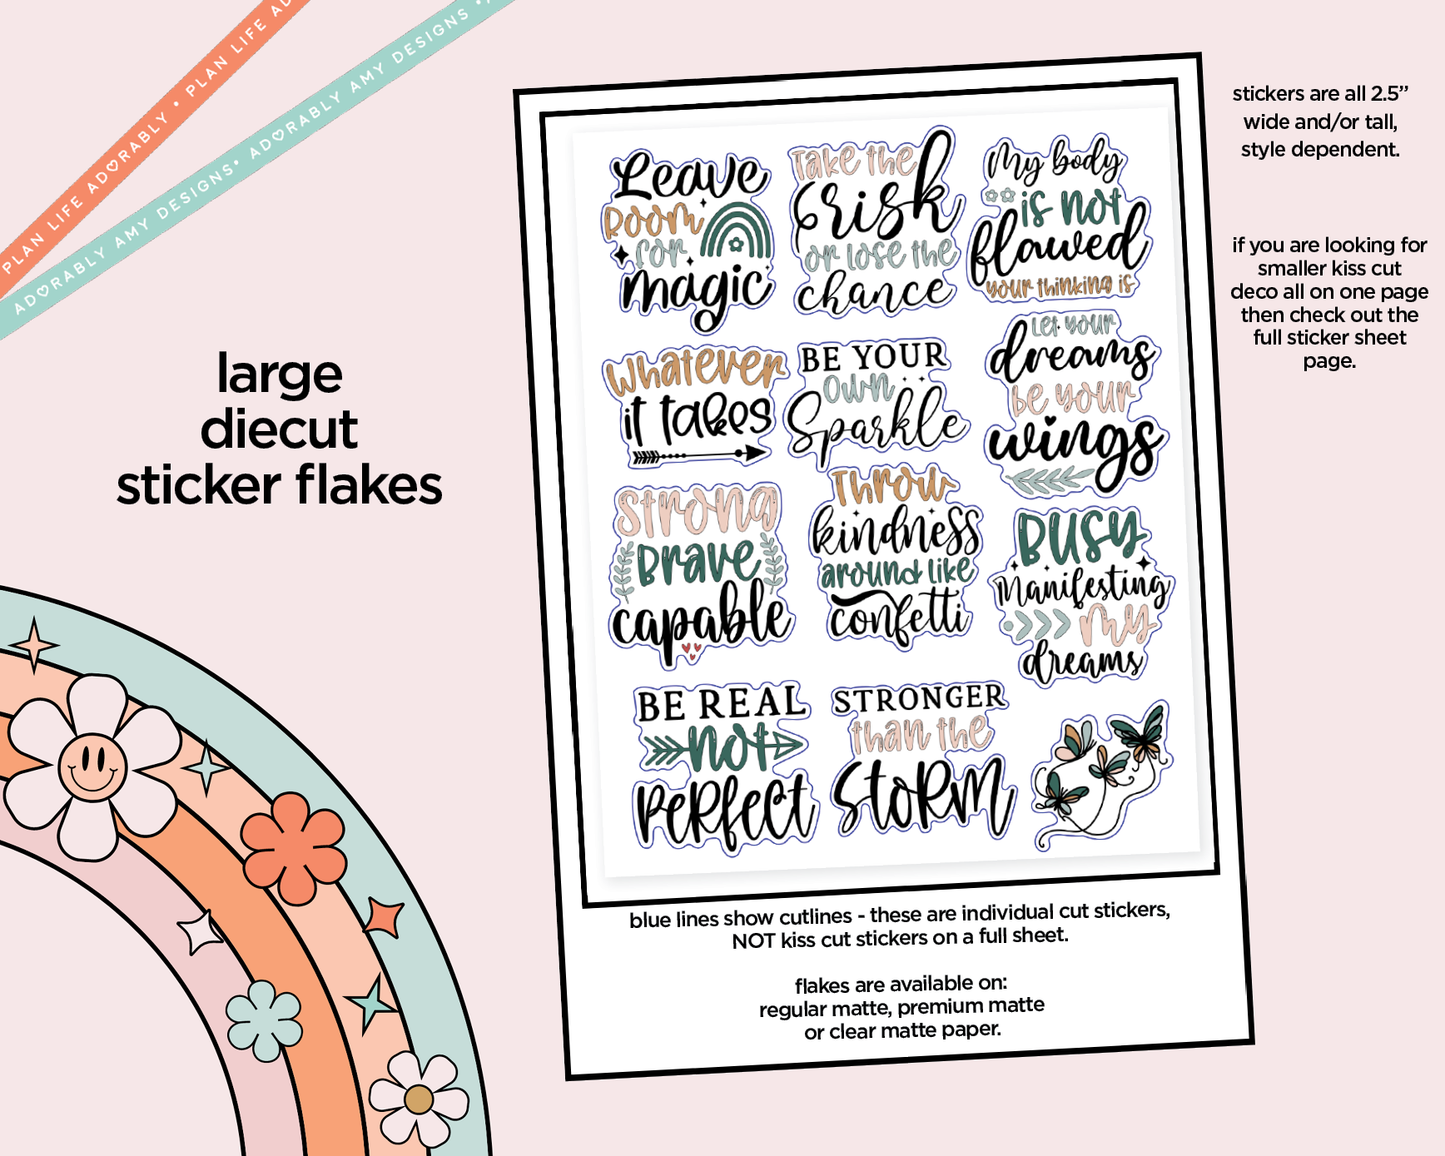 PLAN LIFE ADORABLY • PLAN LIFE AD
ADORABLY AMY DESIGNS• ADORABLY AMY DESIGNS •
large
diecut
sticker flakes
Leave
Room
for
magic
Take the
risk
or lose the
chance
My body
is not
flawed
your thinking is
Whatever
it takes
BE YOUR
own
Sparkle
Let your
dreams
be your
wings
Strong
Brave
capable
Throw
kindness
around like
confetti
Busy
Manifesting
my
dreams
BE REAL
not
PeRfect
STRONGER
than the
StoRM
blue lines show cutlines - these are individual cut stickers,
NOT kiss cut stickers on a full sheet.
flakes are available on:
regular matte, premium matte
or clear matte paper.
stickers are all 2.5”
wide and/or tall,
style dependent.
if you are looking for
smaller kiss cut
deco all on one page
then check out the
full sticker sheet
page.